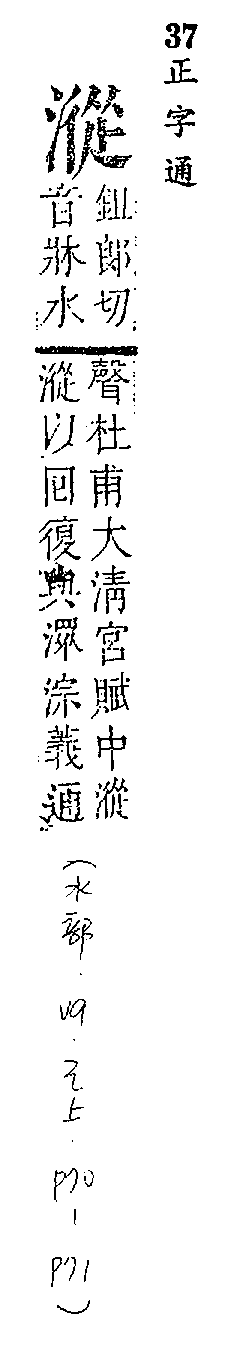 37
正字通
漎
鉏郎切
音牀水
聲杜甫大清宮賦中漎
漎以回復與潀淙義通
(水部.V9.已上.P70-P71)